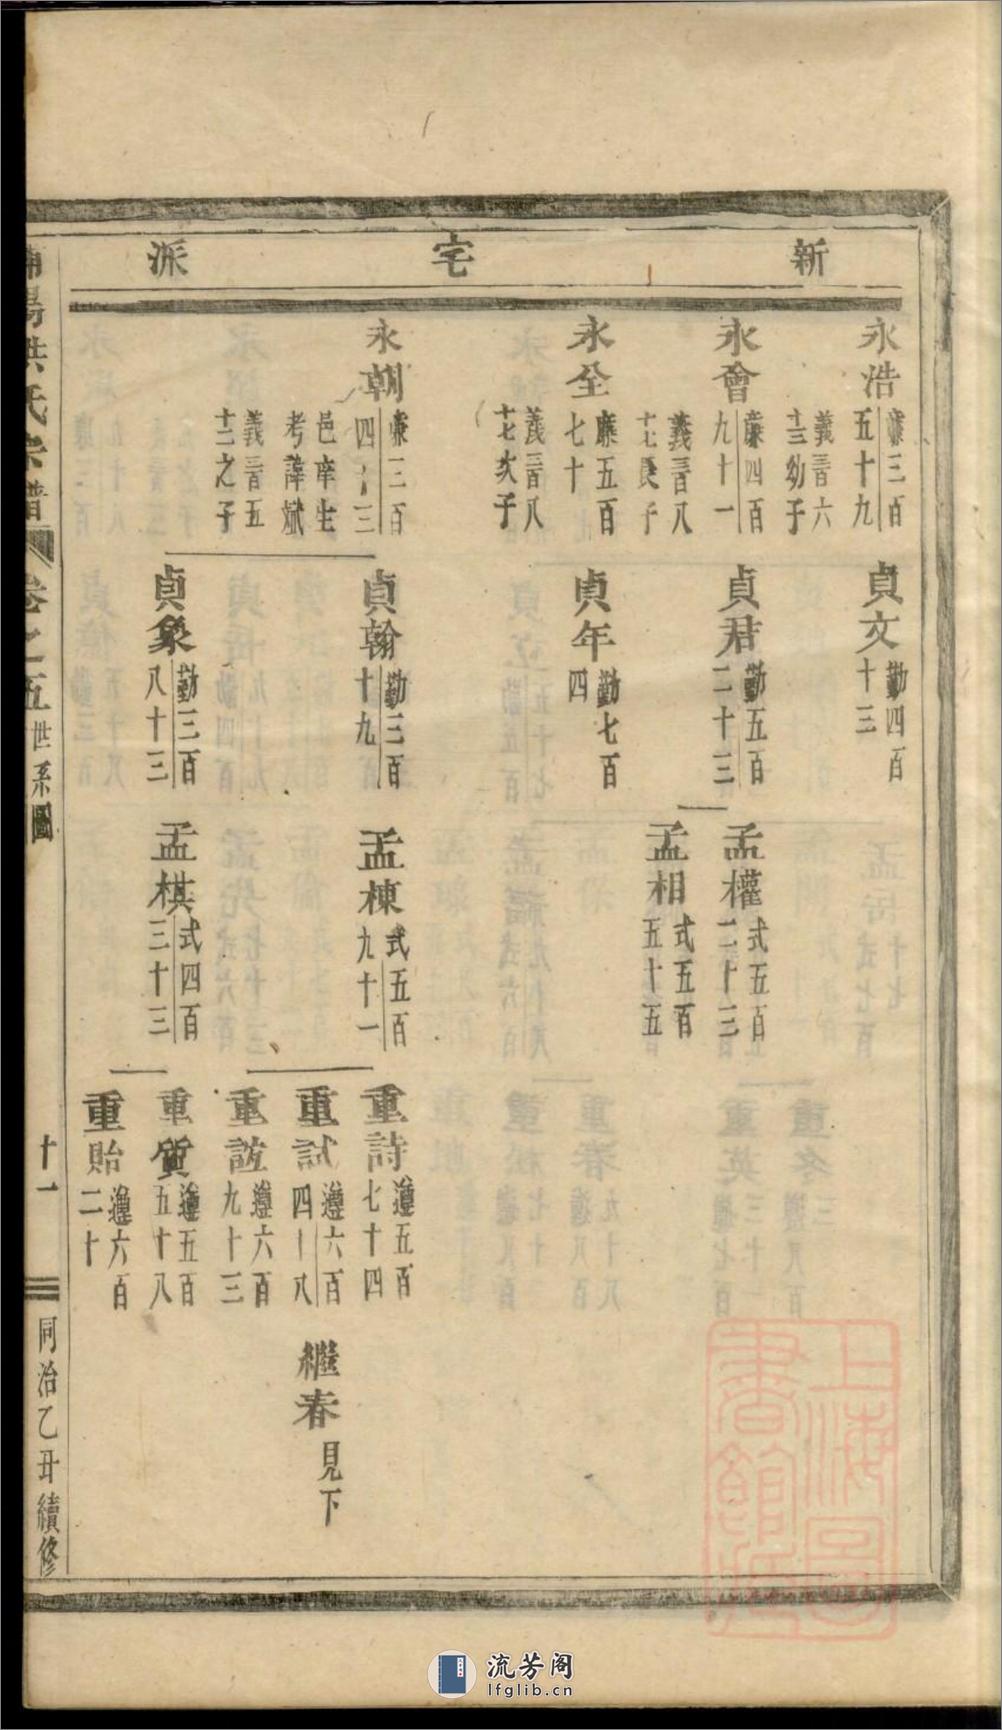 新宅派
永浩
廉三百
五十九
義三百六
十三幼子
永會
廉四百
九十一
義三百八
十七長子
永全
廉五百
七十
義三百八
十七次子
永朝
廉三百
邑庠生
考諱斌
義三百五
十二之子
貞文
勤四百
十三
貞君
勤五百
二十三
貞年
勤七百
四
貞翰
勤三百
十九
貞象
勤三百
八十三
孟權
式五百
二十三
孟相
式五百
五十五
孟棟
式五百
九十一
孟棋
式四百
三十三
重詩
遵五百
七十四
重試
遵六百
四十八
重誼
遵六百
九十三
重質
遵五百
五十八
重貽
遵六百
二十
繼春
見下
陽洪氏宗譜
卷之五
世系圖
十一
同治乙丑續修
上海圖書館藏
流芳阁
lfglib.cn